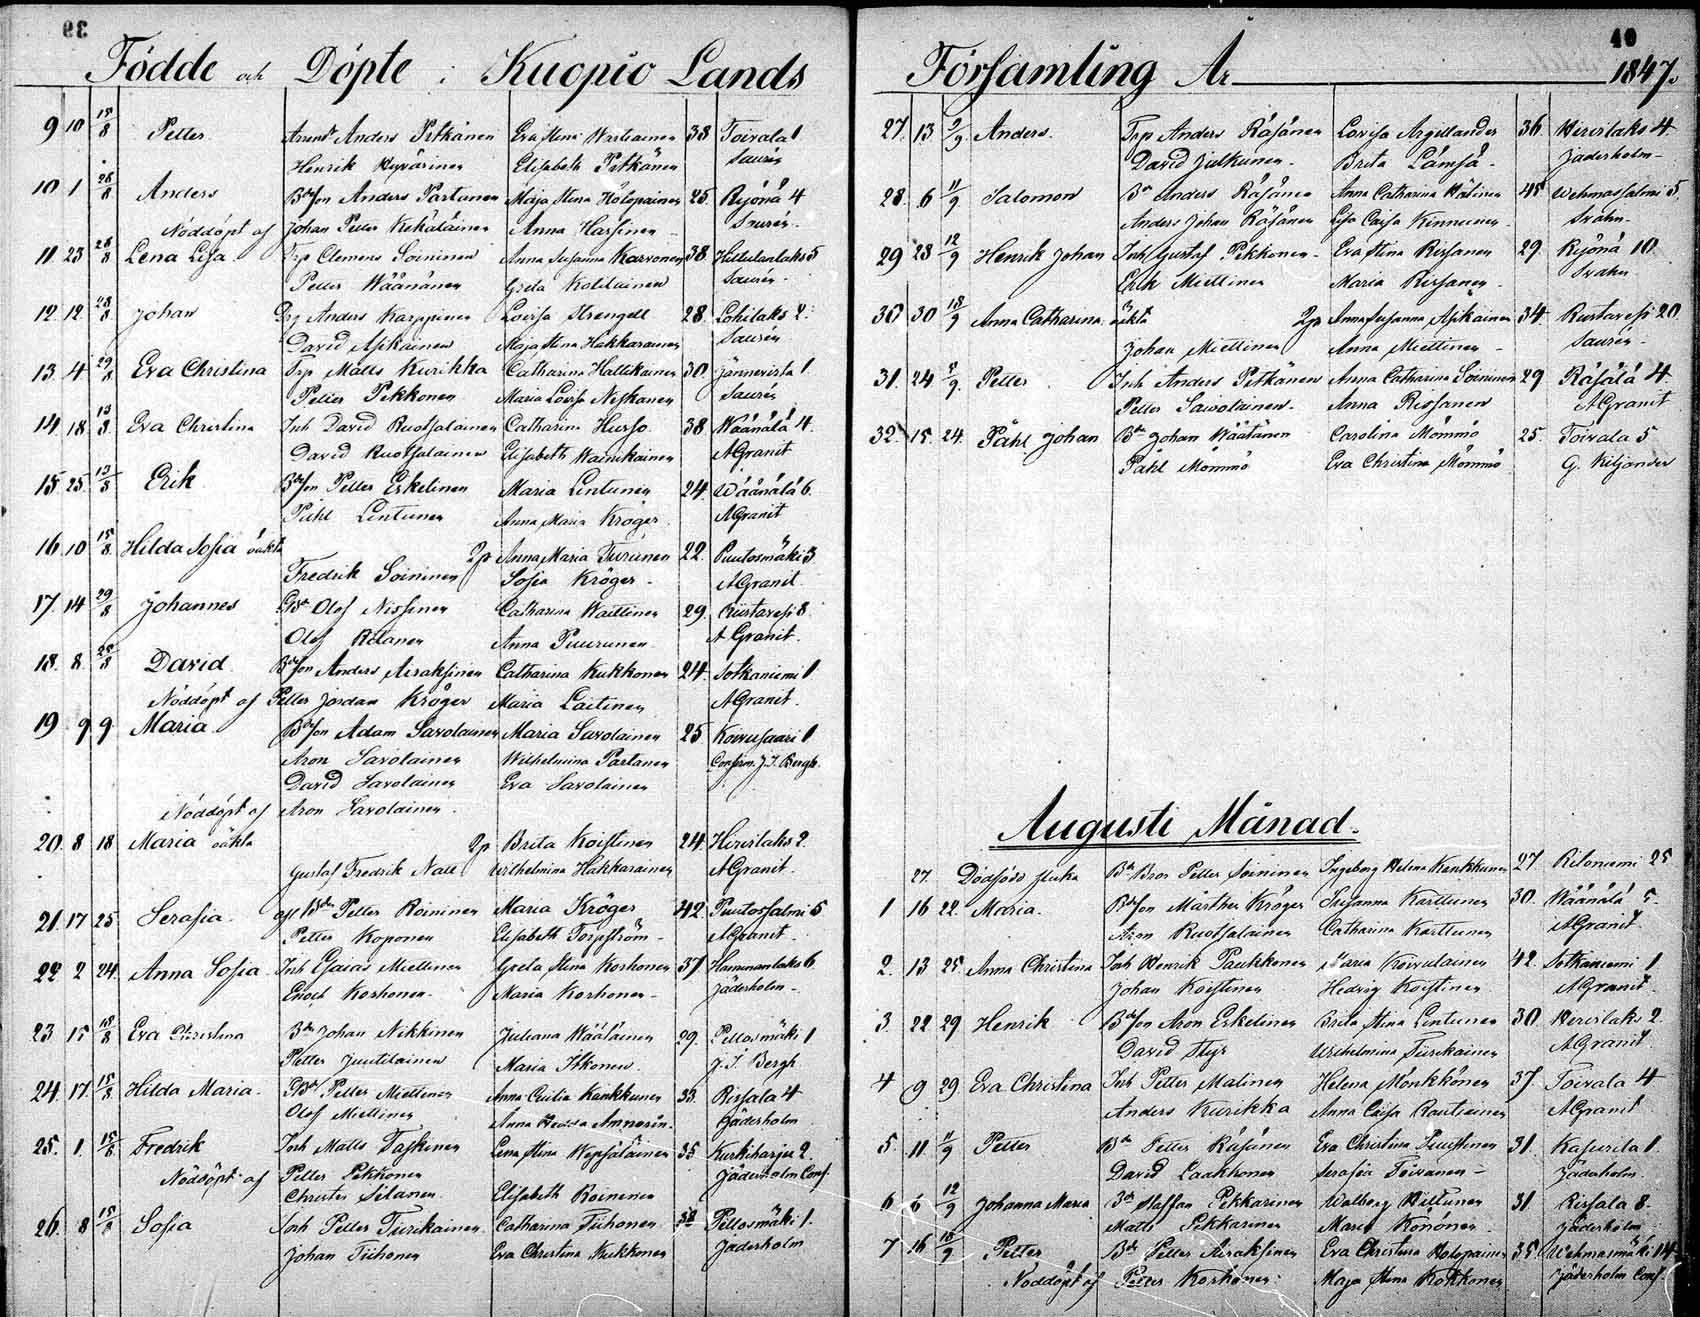 39
Födde och Döpte i Kuopio Lands
9 10 15/8 Petter Arrend. Anders Pitkänen Eva Stina Wartiainen 38 Toivala 1
Henrik Hyvärinen Elisabeth Pitkänen Saurén
10 1 28/8 Anders Bdeson Anders Partanen Maja Stina Holopainen 25. Ryönä 4
Nöddöpt af Johan Petter Kekäläinen Anna Hassinen Saurén
11. 23 28/8 Lena Lisa Trp Clemens Soininen Anna Susanna Karvonen 38 Hiltulanlaks 5
Petter Wäänänen Greta Kolilainen Saurén
12. 12. 28/8 Johan Drg Anders Karppinen Lovisa Strengell 28. Lohilaks 2.
David Asikainen Maja Stina Hakkarainen Saurén
13. 4 29/8 Eva Christina Trp Matts Kurikka Catharina Hallikainen 30. Jännevirta 1.
Petter Pekkonen Maria Lovisa Niskanen Saurén
14. 18. 13/8 Eva Christina Inh David Ruotsalainen Catharina Husso 38 Wäänälä 4.
David Ruotsalainen Elisabeth Wainikainen AGranit
15 25. 13/8 Erik Bdeson Petter Eskelinen Maria Lintunen 24. Wäänälä 6.
Påhl Lintunen Anna Maria Kröger AGranit
16. 10 15/8 Hilda Sofia oäkta 2p Anna Maria Turunen 22. Puutosmäki 3
Fredrik Soininen Sofia Kröger AGranit.
17. 14 29/8 Johannes Bde Olof Nissinen Catharina Waittinen 29. Riistavesi 8.
Olof Anna Puurunen AGranit.
18. 8. 29/8 David Bdeson Anders Airaksinen Catharina Kukkonen 24. Sotkaniemi 1
Nöddöpt af Petter Jordan Kröger Maria Laitinen AGranit.
19 9 9 Maria Bdeson Adam Savolainen Maria Savolainen 25 Koivusaari 1
Aron Savolainen Wilhelmina Partanen Confirm. J. I. Bergh.
David Savolainen Eva Savolainen
Nöddöpt af Aron Savolainen
20. 8 18 Maria oäkta 2p Brita Koistinen 24. Hirvilaks 2.
Gustaf Fredrik Nall Wilhelmina Hakkarainen AGranit.
21. 17 25 Serafia. Bde Petter Roininen Maria Kröger 42. Puutossalmi 5
Petter Koponen Elisabeth Torpström AGranit.
22. 2 24. Anna Sofia Inh Esaias Miettinen Greta Stina Korhonen 37 Hammanlaks 6
Enoch Korhonen Maria Korhonen Jäderholm
23 15 18/8 Eva Christina Bde Johan Nikkinen Juliana Wäätäinen 29. Pellosmäki 1
Petter Juutilainen Maria Itkonen J. I. Bergh
24. 17 15/8 Hilda Maria. Bde Petter Miettinen Anna Cecilia Kankkunen 33. Rissala 4
Olof Miettinen Anna Hedda Ammorin. Jäderholm
25. 1. 15/8 Fredrik Inh Matts Taskinen Lena Stina Wepsäläinen 35 Kurkiharju 2.
Nöddöpt af Petter Pekkonen Jäderholm Conf.
Christer Silanen Elisabeth Roininen
26. 8 15/8 Sofia Inh Petter Tiirikainen Catharina Tiihonen Pellosmäki 1.
Johan Tiihonen Eva Christina Kukkonen Jäderholm
40
Församling År 1847.
27. 13 5/9 Anders. Trp Anders Räsänen Lovisa Argillander 36. Hirvilaks 4
David Julkunen. Brita Lämsä. Jäderholm
28. 6 11/9 Salomon Bde Anders Räsänen Anna Catharina Wätinen 45 Wehmassalmi 5.
Anders Johan Räsänen Lisa Caisa Kinnunen Svahn
29 28 12/9 Henrik Johan Inh Gustaf Pekkonen Eva Stina Rissanen 29. Ryönä 10
Erik Miettinen Maria Rissanen Svahn
30 30 18/9 Anna Catharina oäkta 2p Anna Susanna Asikainen 34. Riistavesi 20
Johan Miettinen Anna Miettinen Saurén
31. 24 Petter Inh Anders Pitkänen Anna Catharina Soininen 29 Räsälä 4.
Petter Savolainen. Anna Rissanen AGranit
32. 15. 24. Påhl Johan Bde Johan Wäätänen Carolina Mömmö 25. Toivala 5
Påhl Mömmö Eva Christina Mömmö G. Kiljander
Augusti Månad.
27. Dödfödd flicka Petter Soininen Ingeborg Helena Kankkunen 27 Ritoniemi 25
1 16 22. Maria. Bdeson Märther Kröger Susanna Karttunen 30. Wäänälä 5.
Aron Ruotsalainen Catharina Karttunen AGranit.
2. 13 25 Anna Christina Inh Henrik Paukkonen Maria Koivulainen 42. Sotkaniemi 1
Johan Koistinen Hedvig Koistinen AGranit.
3. 22 29 Henrik Bdeson Aron Eskelinen Brita Stina Lintunen 30. Hirvilaks 2.
David Styr Wilhelmina Tiirikainen AGranit
4 9 29 Eva Christina Inh Petter Malinen Helena Mönkkönen 37. Toivala 4
Anders Kurikka Anna Caisa Rautiainen AGranit
5 11 11/9 Petter Bde Petter Räsänen Eva Christina Puustinen 31. Kasurila 1.
David Laakkonen Serafia Toivanen Jäderholm
6 6 12/9 Johanna Maria Bde Staffan Pekkarinen Walborg Hiltunen 31 Rissala 8.
Matts Pekkarinen Maria Könönen Jäderholm
7 16 18/9 Petter Bde Petter Airaksinen Eva Christina Holopainen 35. Wehmasmäki 14
Nöddöpt af Petter Korhonen. Maja Stina Kokkonen Jäderholm Conf.